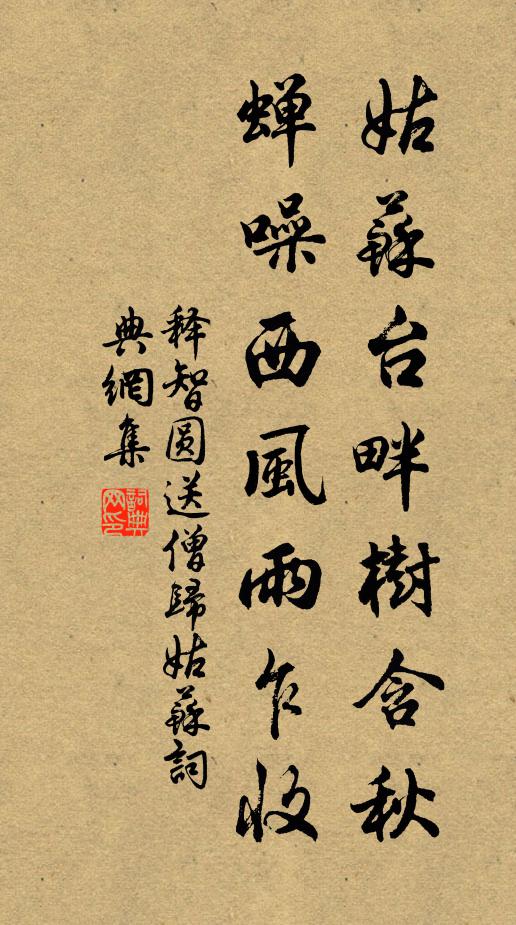 姑蘇台畔樹含秋
蝉噪西風雨乍收
释智圆送僧歸姑蘇詞
典網集
詞典
网印